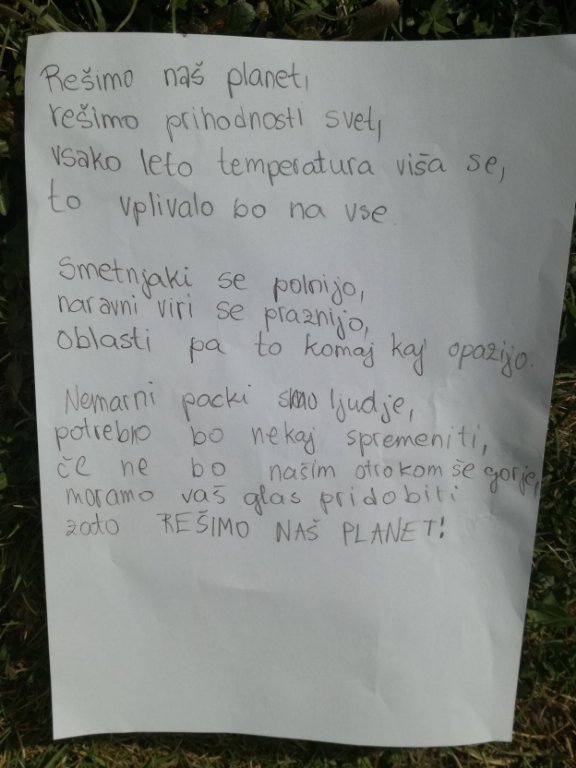 Rešimo naš planet,
rešimo prihodnosti svet,
vsako leto temperatura viša se,
to vplivalo bo na vse.
Smetnjaki se polnijo,
naravni viri se praznijo,
oblasti pa to komaj kaj opazijo.
Nemarni packi smo ljudje,
potrebno bo nekaj spremeniti,
če ne bo našim otrokom še gorje,
moramo vaš glas pridobiti
zato REŠIMO NAŠ PLANET!